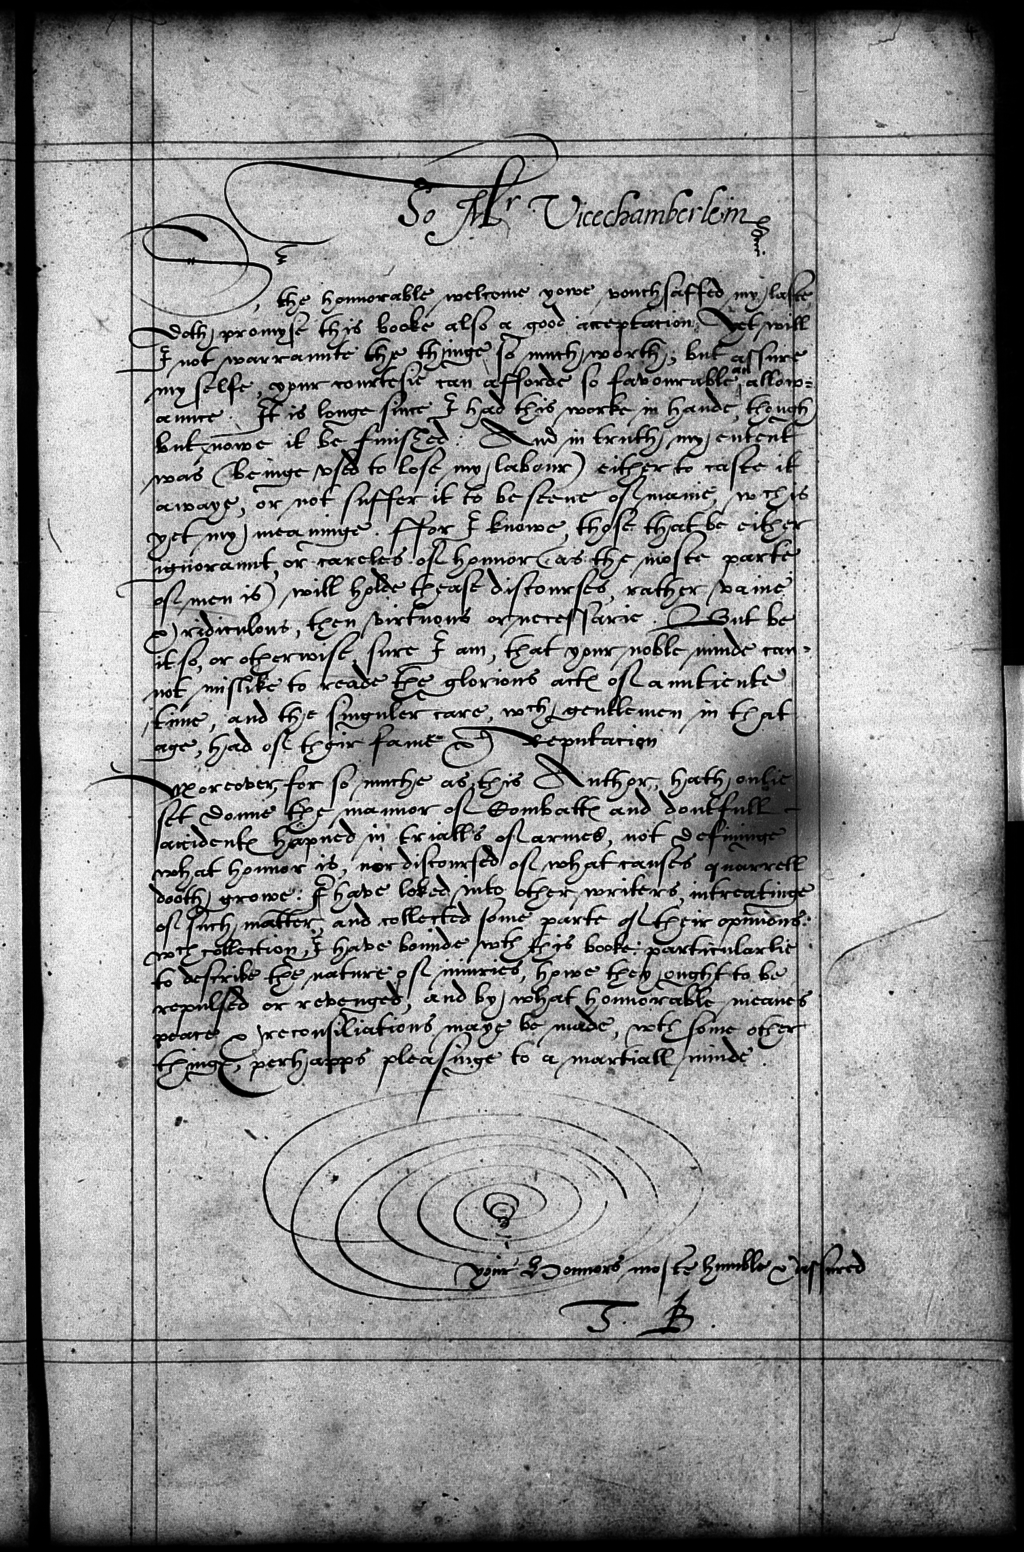 To Mr Vicechamberlein
Sr, the honnorable welcome yowe vouchsaffed my laste
doth promyse this booke also a good acceptation, Yet will
I not warrannte the thinge so much worth, but assure
my selfe, your courtesie can afforde so favourable an allow=
annce. It is longe since I had this worke in hande, though
but nowe it be finished: And in truth my entent
was (beinge used to lose my labour) either to caste it
awaye, or not suffer it to be seene of manie, wch is
yet my meaninge. ffor I knowe, those that be either
ignorannt, or careles of honnor (as the moste parte
of men is) will holde thease discourses, rather vaine
& ridiculous, then virtuous or necessarie. But be
it so, or otherwise, sure I am, that your noble minde can=
not mislike to reade the glorious actes of anntiente
time, and the singuler care, wch gentlemen in that
age, had of their fame & Reputacion
Moreover, for so muche as this Author, hath onlie
set downe the mannor of Combattes and doutfull
accidentes hapned in trialls of armes, not defininge
what honnor is, nor discoursed of what causes quarrell
dooth growe: I have loked into other writers, intreatinge
of such matter, and collected some parte of their opinions:
wch collection, I have bounde wth this booke: particularlie
to describe the nature of iniuries, howe they ought to be
repulsed or revenged, and by what honnorable meanes
peace & reconsiliations maye be made, wth some other
thinges, perhapps pleasinge to a martiall minde
your Honnors moste humble & assured
T. B.